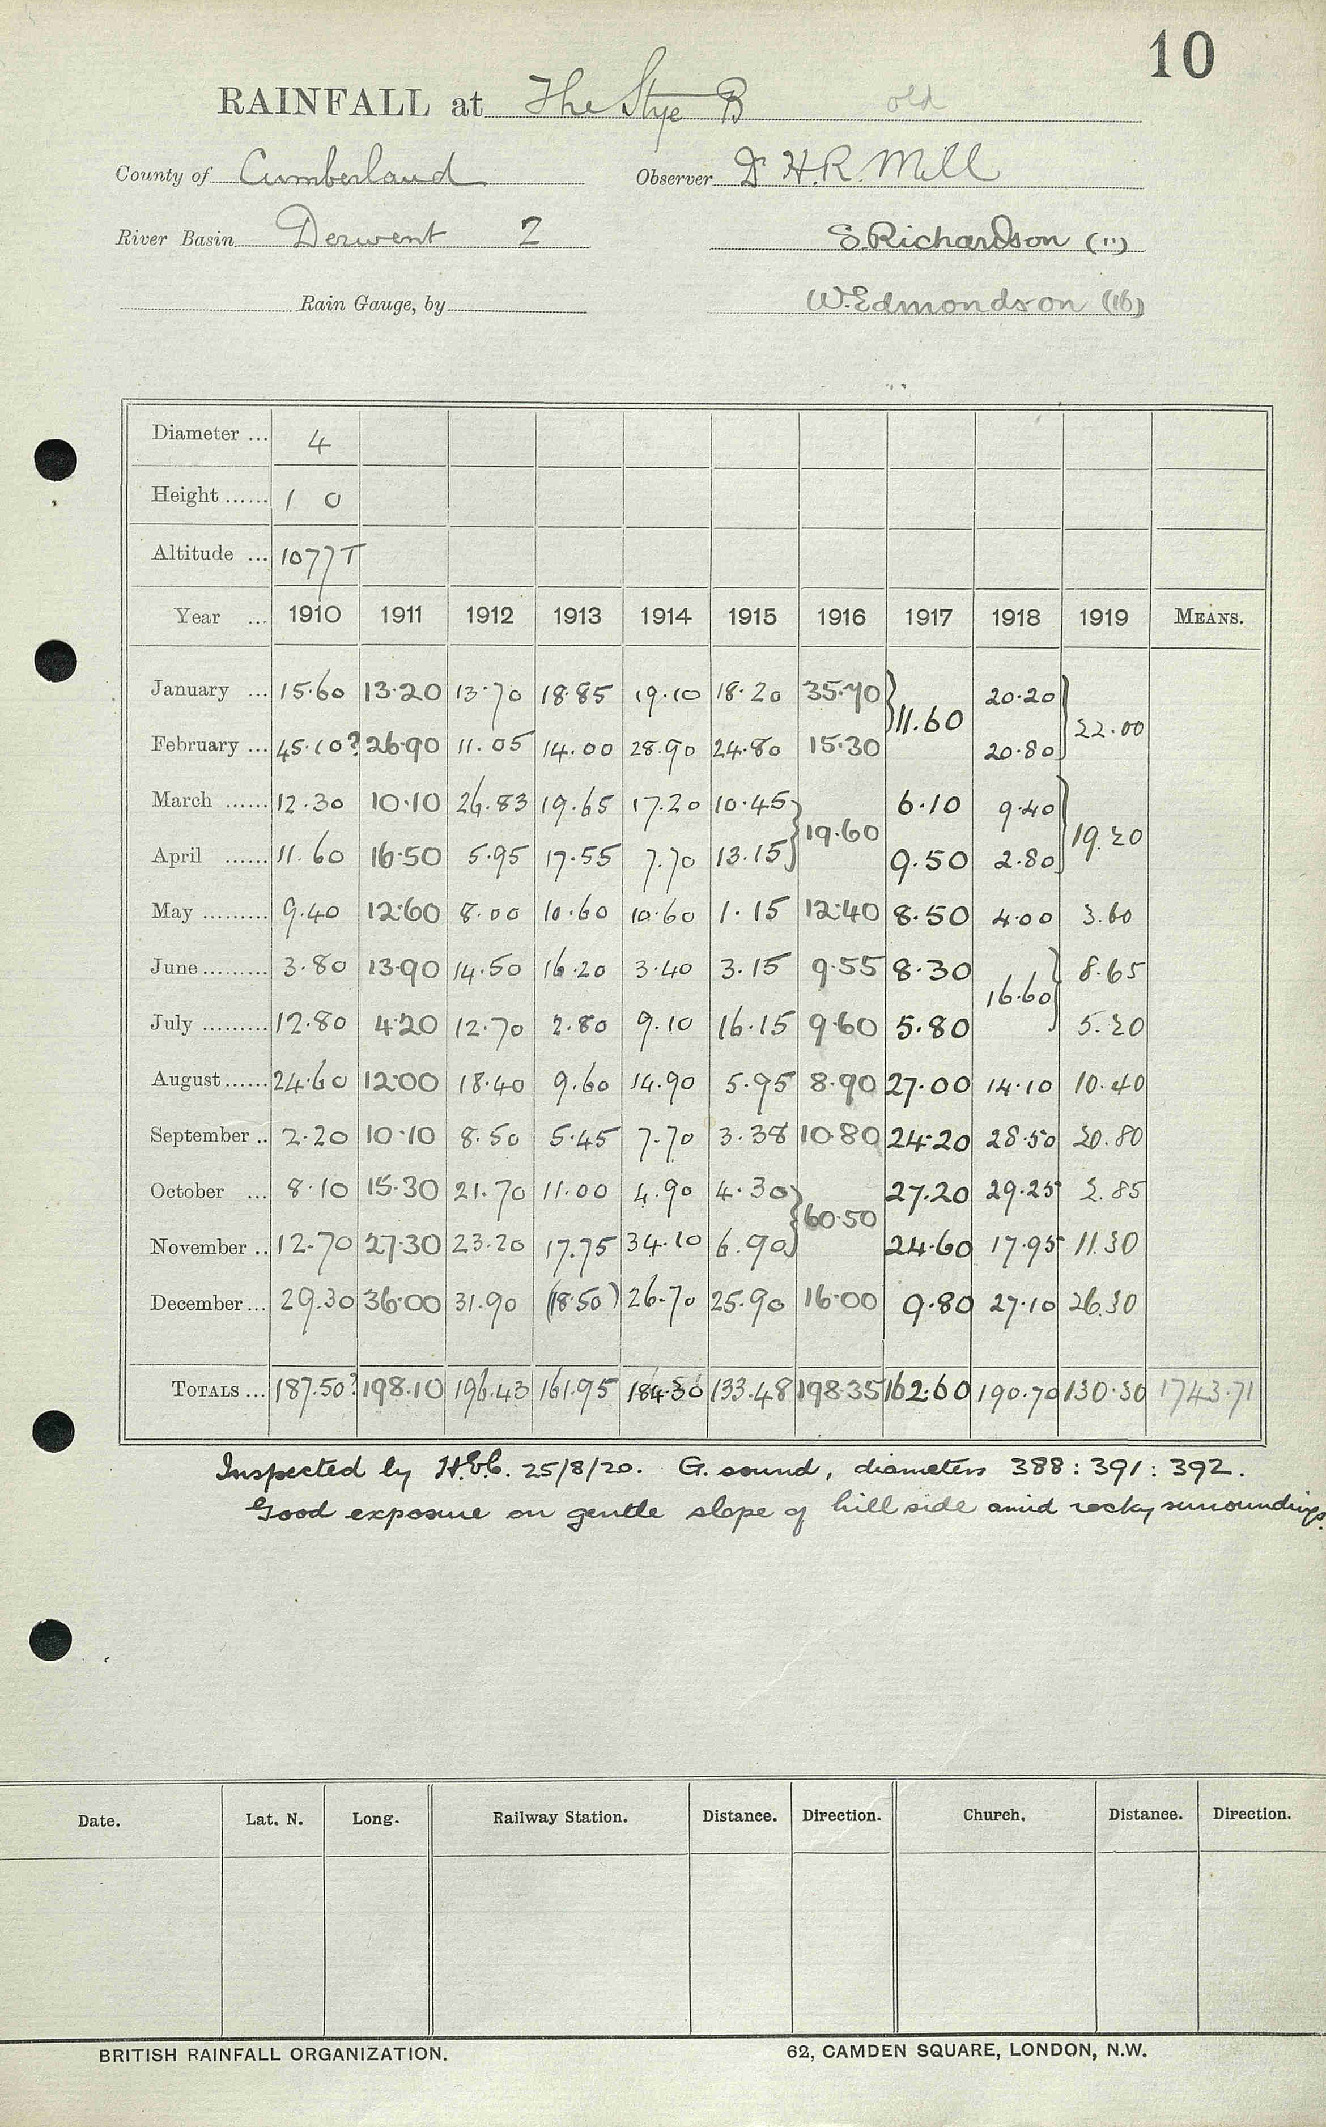 10
RAINFALL at The Stye B old
County of Cumberland Observer Dr H.R. Mill
River Basin Derwent 2 S. Richardson (")
Rain Gauge, by W. Edmondson (16)
Diameter ... 4
Height ...... 1 0
Altitude ... 1077 T
Year ... 1910 1911 1912 1913 1914 1915 1916 1917 1918 1919 MEANS.
January ... 15.60 13.20 13.70 18.85 19.10 18.20 35.70 } 11.60 20.20 } 22.00
February ... 45.10? 26.90 11.05 14.00 28.90 24.80 15.30 20.80
March ...... 12.30 10.10 26.83 19.65 17.20 10.45 } 19.60 6.10 9.40 } 19.20
April ...... 11.60 16.50 5.95 17.55 7.70 13.15 9.50 2.80
May ......... 9.40 12.60 8.00 10.60 10.60 1.15 12.40 8.50 4.00 3.60
June ......... 3.80 13.90 14.50 16.20 3.40 3.15 9.55 8.30 16.60 } 8.65
July ......... 12.80 4.20 12.70 2.80 9.10 16.15 9.60 5.80 5.20
August ...... 24.60 12.00 18.40 9.60 14.90 5.95 8.90 27.00 14.10 10.40
September .. 2.20 10.10 8.50 5.45 7.70 3.38 10.80 24.20 28.50 20.80
October ... 8.10 15.30 21.70 11.00 4.90 4.30 } 60.50 27.20 29.25 2.85
November .. 12.70 27.30 23.20 17.75 34.10 6.90 24.60 17.95 11.30
December ... 29.30 36.00 31.90 (18.50) 26.70 25.90 16.00 9.80 27.10 26.30
TOTALS ... 187.50? 198.10 196.43 161.95 184.30 133.48 198.35 162.60 190.70 130.30 1743.71
Inspected by 25/8/20. G. sound, diameters 388 : 391 : 392.
Good exposure on gentle slope of hill side amid rocky surroundings.
Date. Lat. N. Long. Railway Station. Distance. Direction. Church. Distance. Direction.
BRITISH RAINFALL ORGANIZATION. 62, CAMDEN SQUARE, LONDON, N.W.